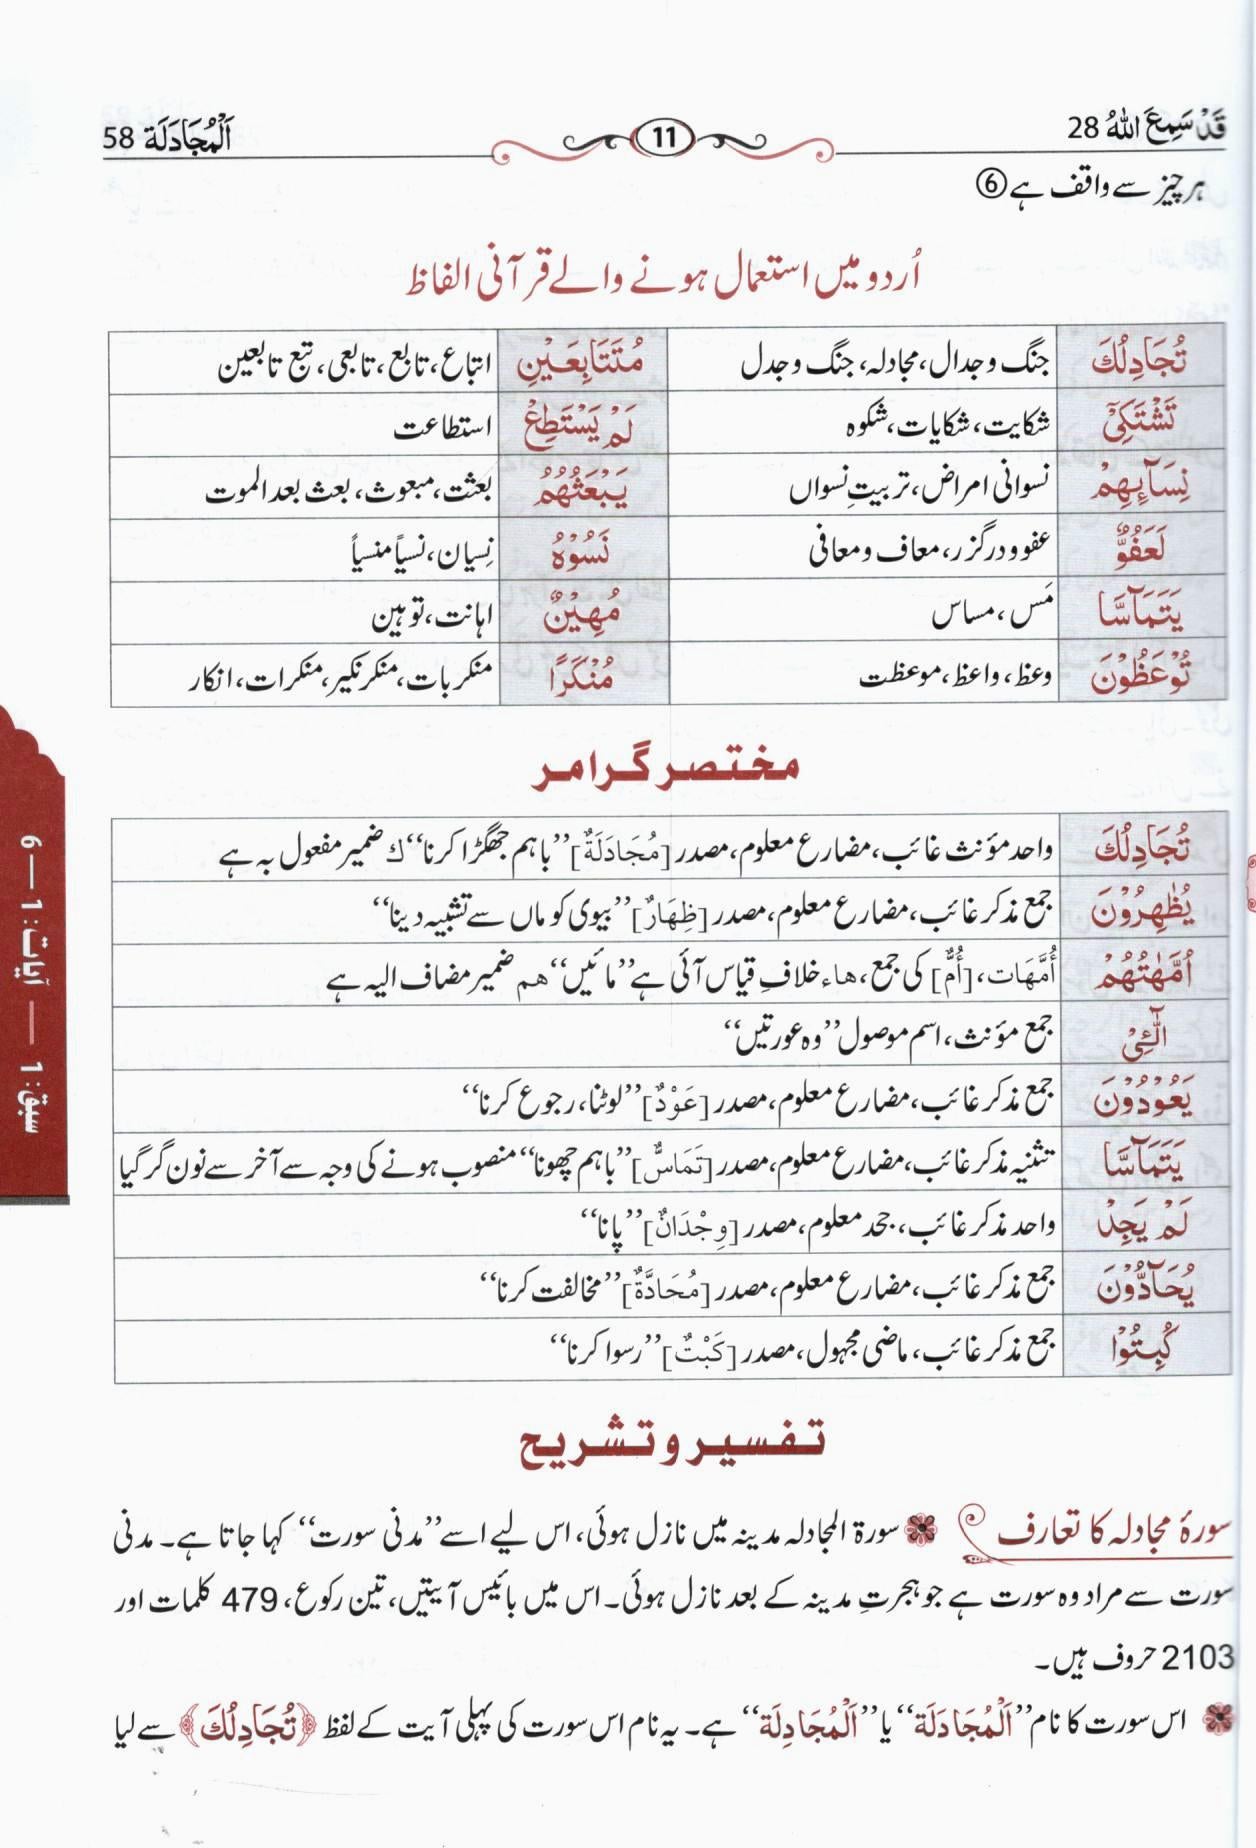 قَدْ سَمِعَ اللهُ 28
11
اَلْمُجَادَلَة 58
ہر چیز سے واقف ہے ⑥
اُردو میں استعمال ہونے والے قرآنی الفاظ
تُجَادِلُكَ جنگ و جدال، مجادلہ، جنگ و جدل مُتَتَابِعَيْنِ اتباع، تابع، تابعی، تبع تابعین
تَشْتَكِيْٓ شکایت، شکایات، شکوہ لَمْ يَسْتَطِعْ استطاعت
نِسَآئِهِمْ نسوانی امراض، تربیتِ نسواں يَبْعَثُهُمُ بَعثت، مبعوث، بعث بعد الموت
لَعَفُوٌّ عفو و درگزر، معاف و معافی نَسُوْهُ نِسیان، نسیاً منسیاً
يَتَمَآسَّا مَس، مساس مُهِيْنٌ اہانت، توہین
تُوْعَظُوْنَ وعظ، واعظ، موعظت مُنْكَرًا منکر بات، منکر نکیر، منکرات، انکار
مختصر گرامر
تُجَادِلُكَ واحد مؤنث غائب، مضارع معلوم، مصدر [مُجَادَلَةٌ] ’’باہم جھگڑا کرنا‘‘ ك ضمیر مفعول بہ ہے
يُظٰهِرُوْنَ جمع مذکر غائب، مضارع معلوم، مصدر [ظِهَارٌ] ’’بیوی کو ماں سے تشبیہ دینا‘‘
اُمَّهٰتُهُمْ أُمَّهَات، [أُمٌّ] کی جمع، هاء خلافِ قیاس آئی ہے ’’مائیں‘‘ هم ضمیر مضاف الیہ ہے
الّٰٓـِٔيْ جمع مؤنث، اسم موصول ’’وہ عورتیں‘‘
يَعُوْدُوْنَ جمع مذکر غائب، مضارع معلوم، مصدر [عَوْدٌ] ’’لوٹنا، رجوع کرنا‘‘
يَتَمَآسَّا تثنیہ مذکر غائب، مضارع معلوم، مصدر [تَمَاسٌّ] ’’باہم چھونا‘‘ منصوب ہونے کی وجہ سے آخر سے نون گر گیا
لَمْ يَجِدْ واحد مذکر غائب، جحد معلوم، مصدر [وِجْدَانٌ] ’’پانا‘‘
يُحَآدُّوْنَ جمع مذکر غائب، مضارع معلوم، مصدر [مُحَادَّةٌ] ’’مخالفت کرنا‘‘
كُبِتُوْا جمع مذکر غائب، ماضی مجہول، مصدر [كَبْتٌ] ’’رسوا کرنا‘‘
تفسیر و تشریح
سورۂ مجادلہ کا تعارف سورة المجادلہ مدینہ میں نازل ہوئی، اس لیے اسے ’’مدنی سورت‘‘ کہا جاتا ہے۔ مدنی
سورت سے مراد وہ سورت ہے جو ہجرتِ مدینہ کے بعد نازل ہوئی۔ اس میں بائیس آیتیں، تین رکوع، 479 کلمات اور
2103 حروف ہیں۔
اس سورت کا نام ’’اَلْمُجَادَلَة‘‘ یا ’’اَلْمُجَادِلَة‘‘ ہے۔ یہ نام اس سورت کی پہلی آیت کے لفظ ﴿تُجَادِلُكَ﴾ سے لیا
سبق: 1 — آیات: 1 — 6